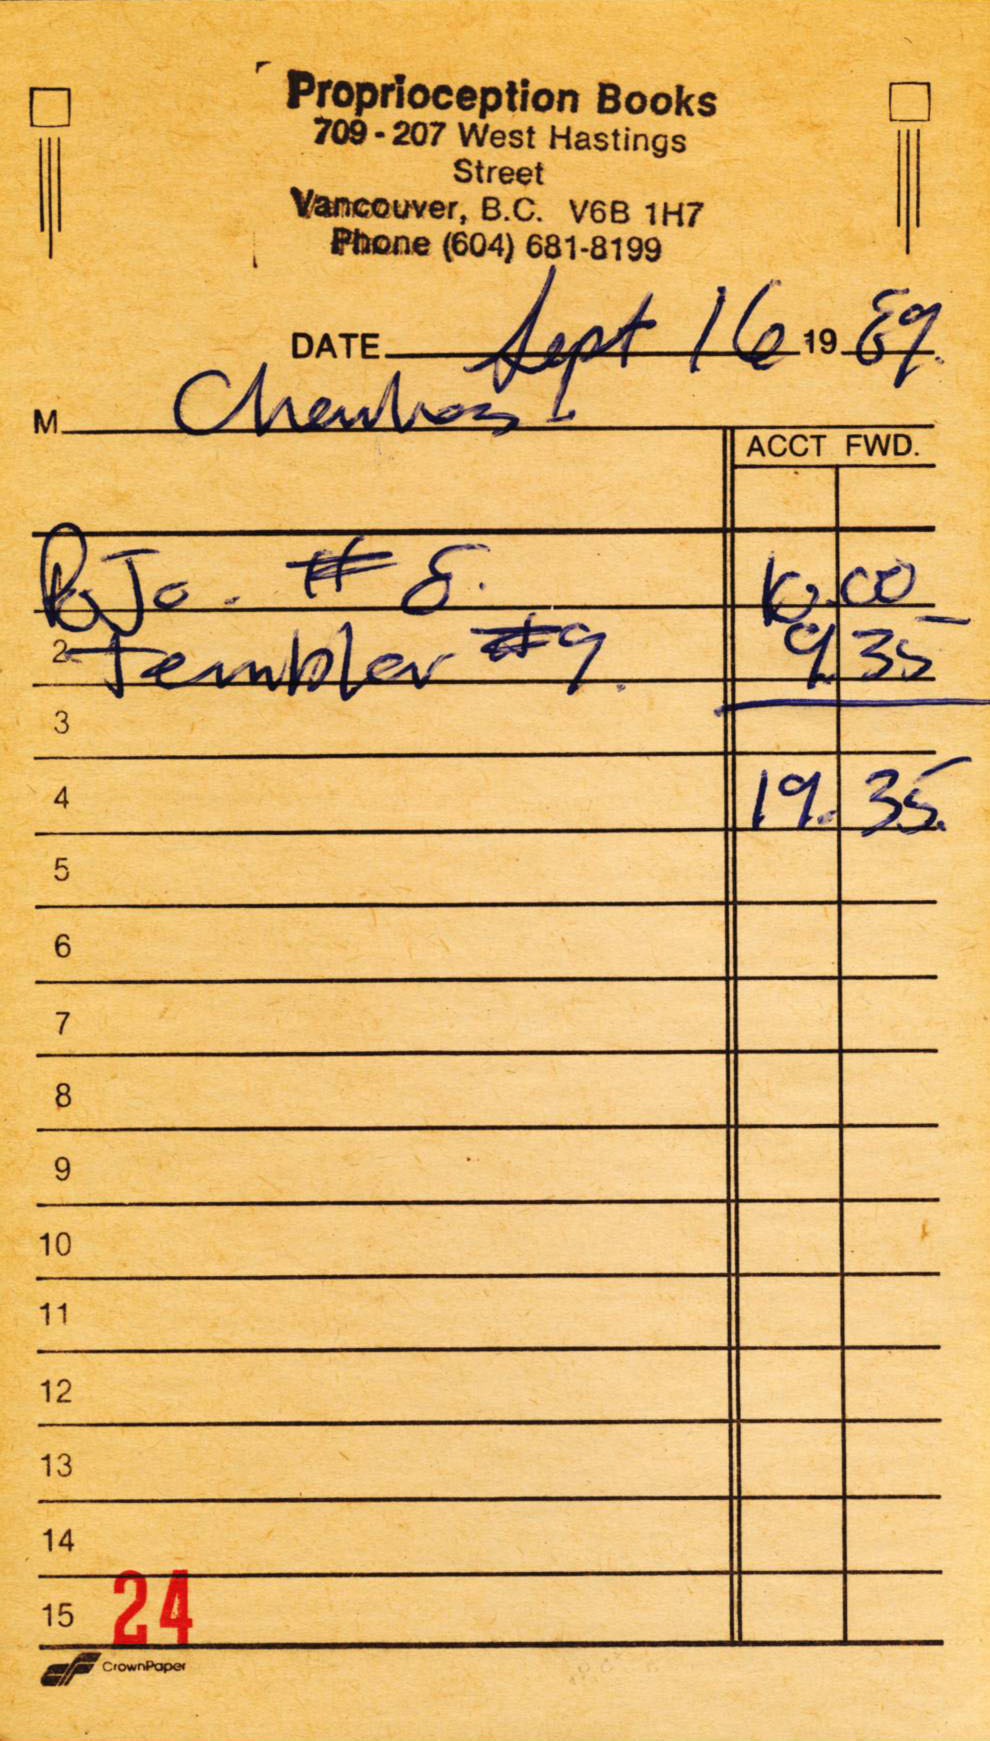 Proprioception Books
709 - 207 West Hastings
Street
Vancouver, B.C. V6B 1H7
Phone (604) 681-8199
DATE Sept 16 19 89.
M
ACCT FWD.
# 8. 10.00
2 Tembler #9. 9.35
3
4 19.35.
5
6
7
8
9
10
11
12
13
14
15 24
CrownPaper